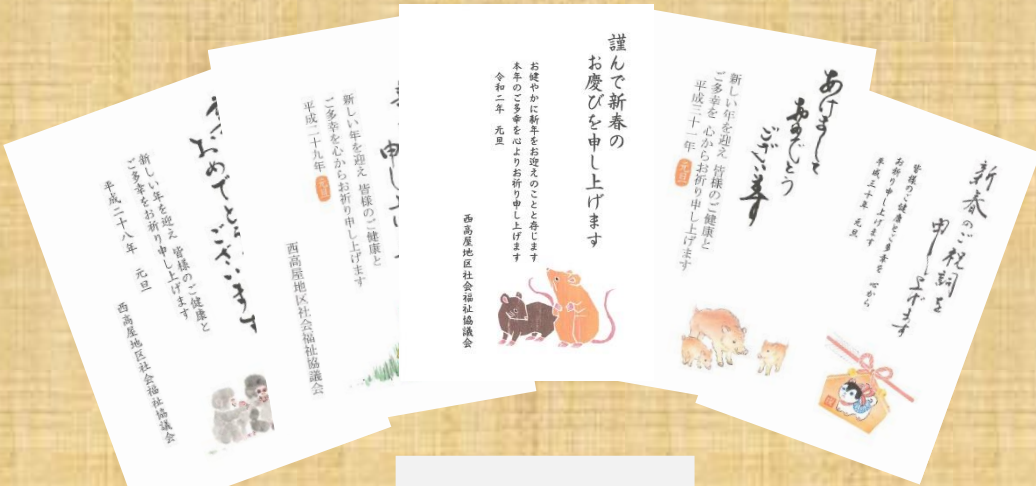 ございます
新しい年を迎え 皆様のご健康と
ご多幸をお祈り申し上げます
平成二十八年 元旦
西高屋地区社会福祉協議会
新しい年を迎え 皆様のご健康と
ご多幸を心からお祈り申し上げます
平成二十九年 元旦
西高屋地区社会福祉協議会
謹んで新春の
お慶びを申し上げます
お健やかに新年をお迎えのことと存じます
本年のご多幸を心よりお祈り申し上げます
令和二年 元旦
西高屋地区社会福祉協議会
あけまして
おめでとう
ございます
新しい年を迎え 皆様のご健康と
ご多幸を 心からお祈り申し上げます
平成三十一年 元旦
新春のご祝詞を
申し上げます
皆様のご健康とご多幸を 心から
お祈り申し上げます
平成三十年 元旦